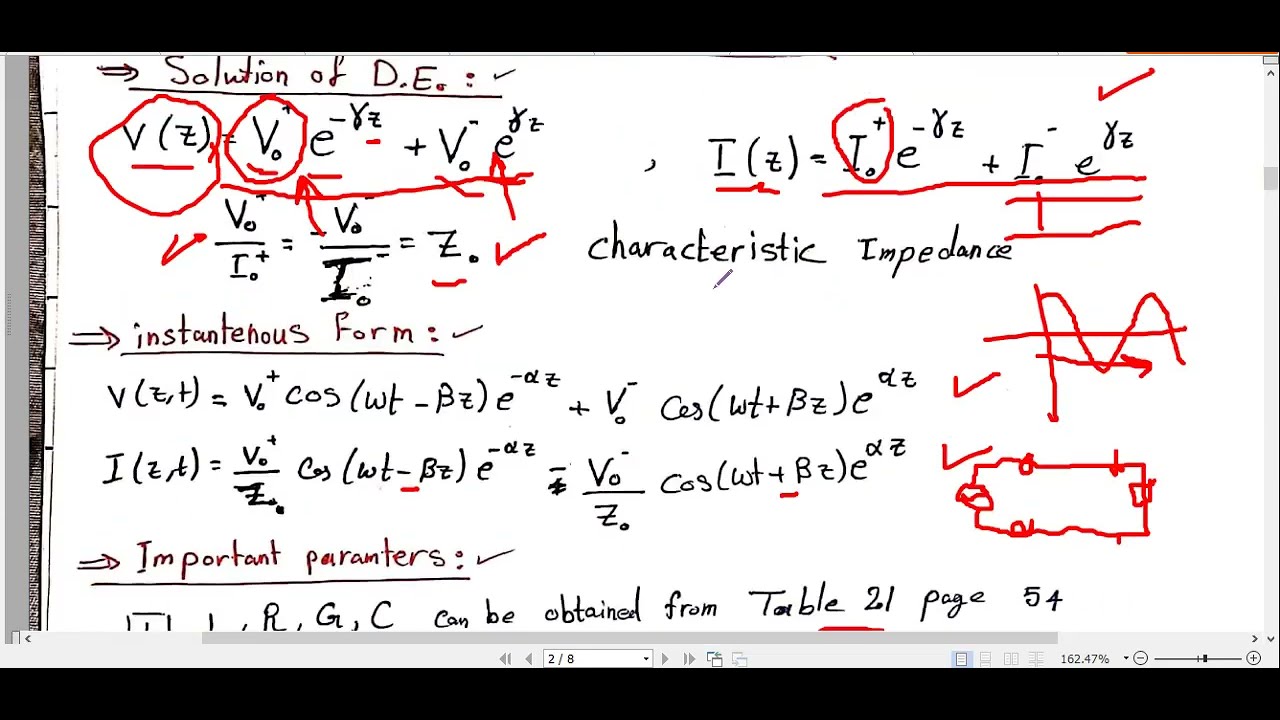 ⇒ Solution of D.E. : ✓
V(z) = V₀⁺ e^{-γz} + V₀⁻ e^{γz} , I(z) = I₀⁺ e^{-γz} + I₀⁻ e^{γz}
V₀⁺/I₀⁺ = -V₀⁻/I₀⁻ = Z₀ characteristic Impedance
⇒ instantenous Form : ✓
V(z,t) = V₀⁺ cos(wt - βz) e^{-αz} + V₀⁻ Cos(wt + βz) e^{αz}
I(z,t) = V₀⁺/Z₀ Cos(wt - βz) e^{-αz} - V₀⁻/Z₀ cos(wt + βz) e^{αz}
⇒ Important paramters : ✓
R, G, C can be obtained from Table 21 page 54
2 / 8
162.47%